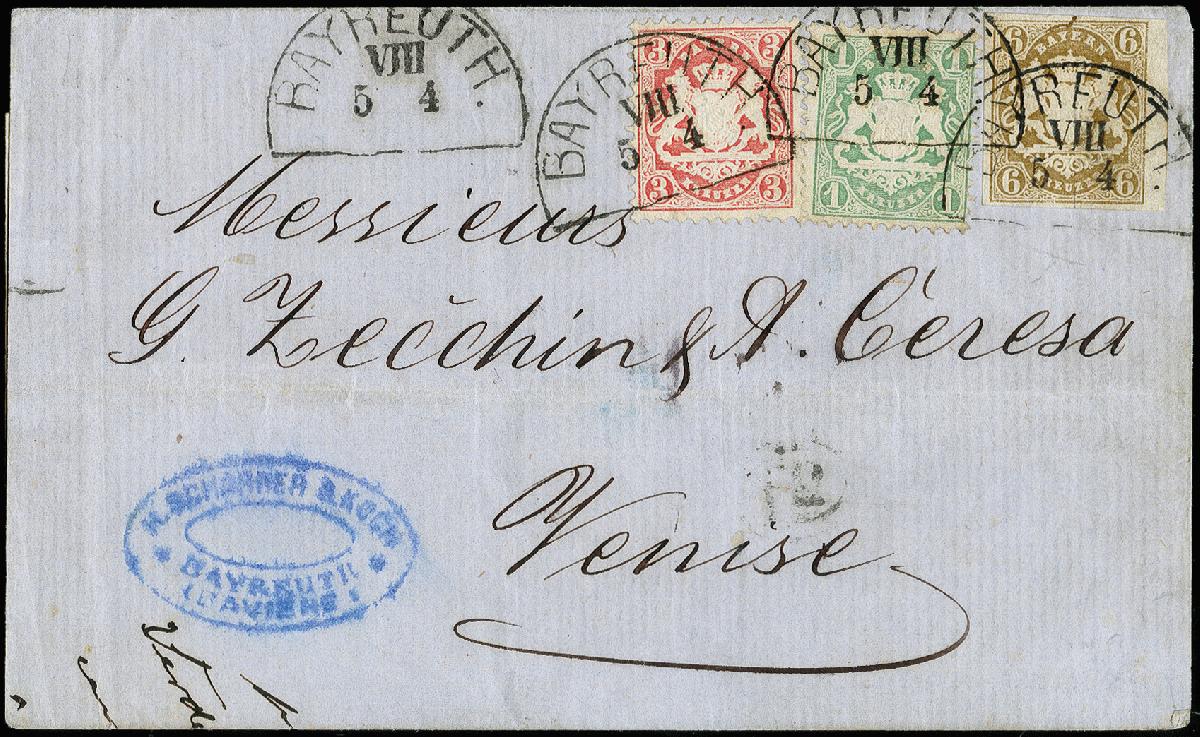 BAYREUTH.
VIII
5 4
BAYREUTH
VIII
5 4
BAYREUTH
VIII
5 4
REUTH.
VIII
5 4
3 3
3 KREUZER 3
1 1
1 KREUZER 1
6 BAYERN 6
6 KREUZER 6
Messieurs
G. Zecchin & A. Ceresa
Venise
& KOCH
BAYREUTH
(BAVIERE)